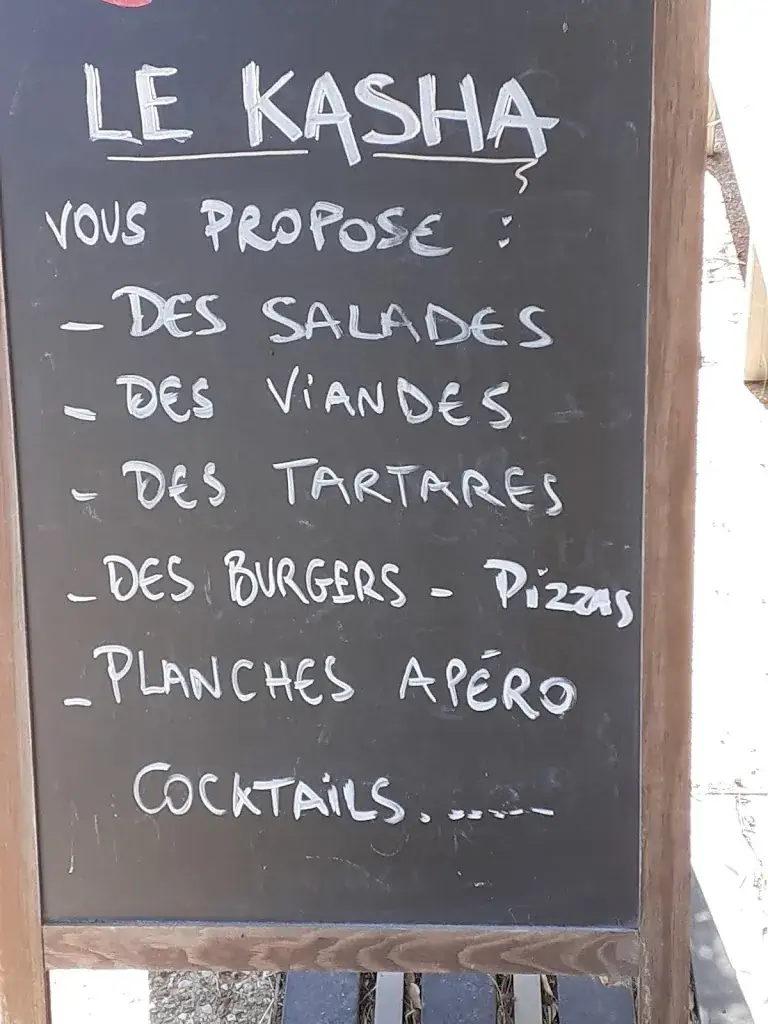 LE KASHA
VOUS PROPOSE :
- DES SALADES
- DES ViANDES
- DES TARTARES
- DES BURGERS - Pizzas
- PLANCHES APÉRO
COCKTAiLS.......